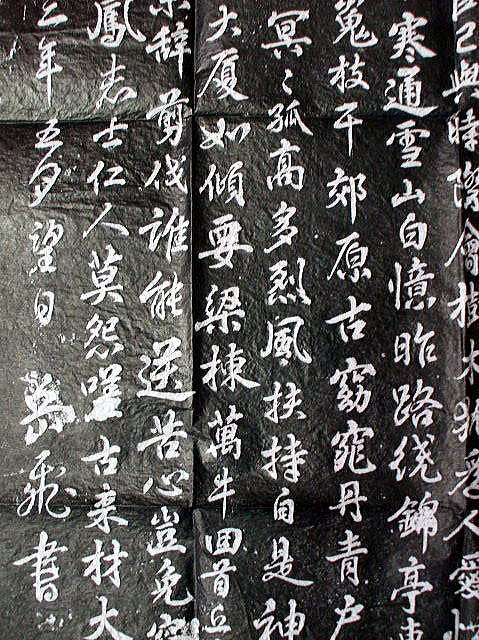 臣已與時際會樹木猶為人愛惜
寒通雪山白憶昨路繞錦亭東
嵬枝干郊原古窈窕丹青戶
冥〻孤高多烈風扶持自是神
大厦如傾要梁棟萬牛回首丘
未辭剪伐誰能送苦心豈免容
鳳志士仁人莫怨嗟古来材大
三年五月望日 岳飛書